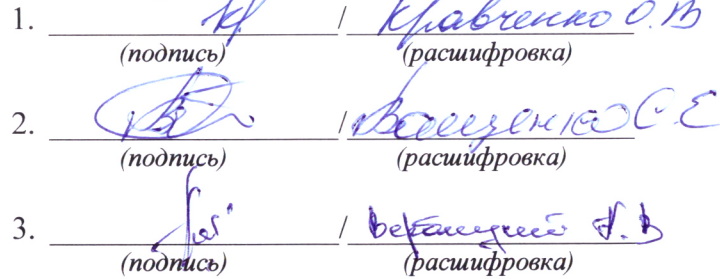 1. / Кравченко О.В
(подпись) (расшифровка)
2. / Ващенко С.Е
(подпись) (расшифровка)
3. / В
(подпись) (расшифровка)